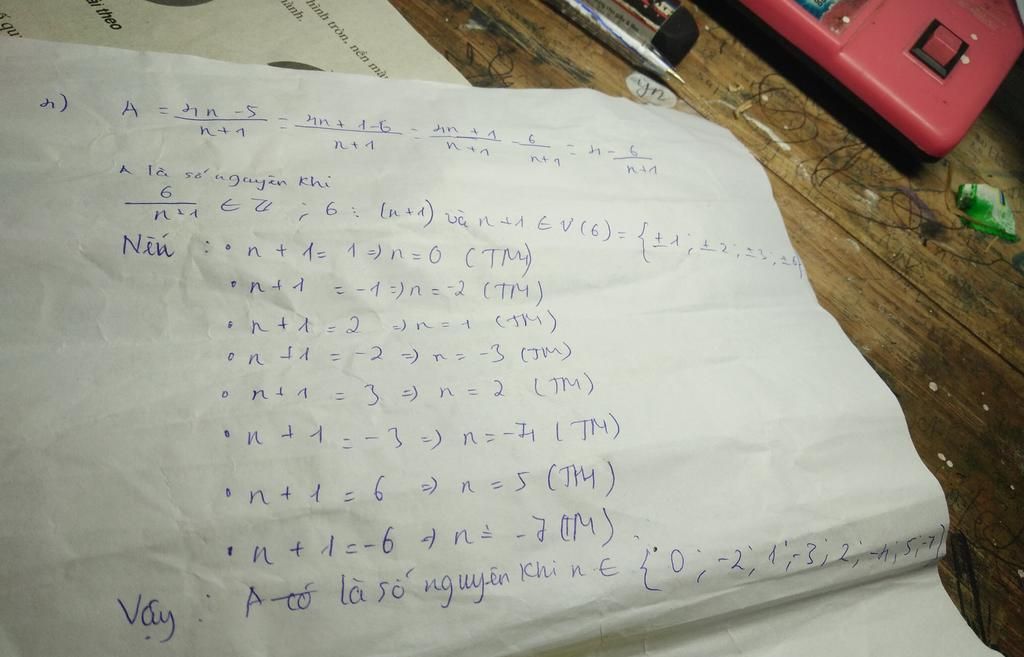 ải theo
hình tròn, nên mà
hành.
4) A = \frac{4n-5}{n+1} = \frac{4n+1-6}{n+1} = \frac{4n+1}{n+1} - \frac{6}{n+1} = 4 - \frac{6}{n+1}
A là số nguyên khi
\frac{6}{n+1} ∈ Z ; 6 ⋮ (n+1) và n+1 ∈ Ư(6) = {±1; ±2; ±3; ±6}
Nếu : • n + 1 = 1 => n = 0 (TM)
• n + 1 = -1 => n = -2 (TM)
• n + 1 = 2 => n = 1 (TM)
• n + 1 = -2 => n = -3 (TM)
• n + 1 = 3 => n = 2 (TM)
• n + 1 = -3 => n = -4 (TM)
• n + 1 = 6 => n = 5 (TM)
• n + 1 = -6 => n = -7 (TM)
Vậy : A có là số nguyên khi n ∈ {0; -2; 1; -3; 2; -4; 5; -7}